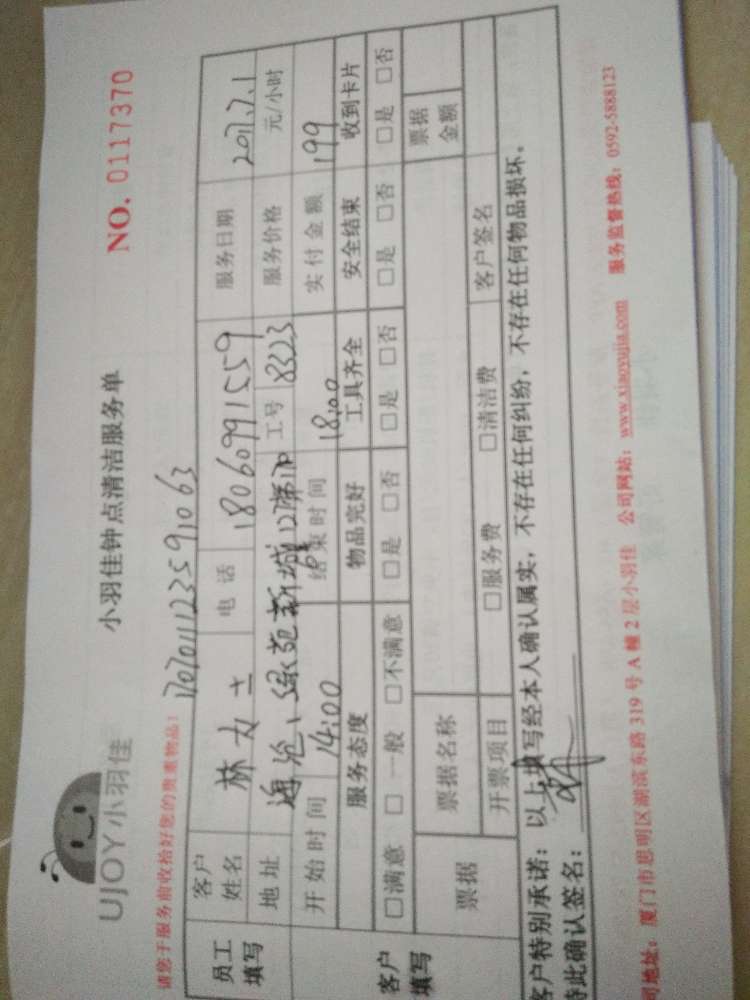 UJOY小羽佳
小羽佳钟点清洁服务单
NO. 0117370
请您于服务前收拾好您的贵重物品！
1707011123591063
员工填写
客户姓名 林女士 电话 18060991559 服务日期 2017.7.1
地址 海沧、绿苑新城12 工号 8323 服务价格 元/小时
开始时间 14:00 结束时间 18:00 实付金额 199
客户填写
服务态度 物品完好 工具齐全 安全结束 收到卡片
□满意 □一般 □不满意 □是 □否 □是 □否 □是 □否 □是 □否
票据 票据名称 票据金额
开票项目 □服务费 □清洁费 客户签名
客户特别承诺：以上填写经本人确认属实，不存在任何纠纷，不存在任何物品损坏。
特此确认签名：
司地址：厦门市思明区湖滨东路 319 号 A 幢 2 层小羽佳 公司网站：www.xiaoyujia.com 服务监督热线：0592-5888123